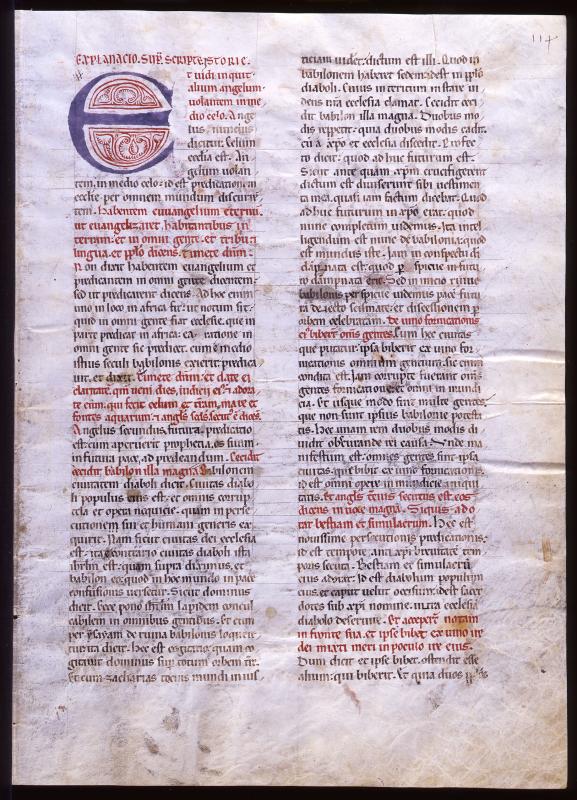 114
EXPLANACIO. SUPRA SCRIPTE ISTORIE.
Et uidi inquit
alium angelum
uolantem in me
dio celo. Ange
lus, 
dicitur. Celum
ecclesia est. An
gelum uolan
tem, in medio celo: id est predicationem in
ecclesie per omnem mundum discurren
tem. habentem euuangelium eternu
ut euuangelizaret habitantibus in
terram: et in omni gente. et tribu
lingua. et populo dicens. timete dnm.
Non dixit habentem euuangelium et
predicantem in omni gente dicentem:
sed ut predicaret dicens. Ad hoc enim
uno in loco in africa fit: ut notum fit:
quid in omni gente fiat ecclesie. que in
parte predicat in africa:
omni gente sic predicet. cum e medio
istius seculi babilonis exierit predica
uit. et dixerit. timete dnm. et date ei
claritatem. quia uenit dies, iudicii eius. adora
te eum. qui fecit celum et terram, mare et
fontes aquarum. Et angelus secundus secutus est dices.
Angelus secundus. futura predicatio
est. cum aperuerit prophetia. et suum
in futura pace, ad predicandum. Cecidit
cecidit babilon illa magna. Babilonem
ciuitatem diaboli dicit. Ciuitas diabo
li populus eius est: et omnis corrup
tela et opera nequicie. quam in perse
cutionem sui et humani generis ex
quirit. Nam sicut ciuitas dei ecclesia
est: ita econtrario ciuitas diaboli ista
babilon est: quam supra diximus, et
babilon est: quod in hoc mundo in pace
confusionis uersetur. Sicut dominus
dicit. Ecce pono lapidem concul
cabilem in omnibus gentibus. Et cum
per ysayam de ruina babilonis loquere
tur ita dicit. hec est cogitatio: quam co
gitauit dominus super totum orbem terre.
Et cum zacharias tocius mundi inius
ticiam uidet: dictum est illi. Quod in
babilonem haberet sedem: id est in populo
diaboli. Cuius interitum instare ui
dens nostra ecclesia clamat. Cecidit ceci
dit babilon illa magna. Duobus mo
dis repetit: quia duobus modis cadit.
cum a christo et ecclesia discedit.
to dicit: quod adhuc futurum est.
Sicut ante quam christum crucifigerent
dictum est diuiserunt sibi uestimen
ta mea. quasi iam factum dicebat. Quod
adhuc futurum in christo erat: quod
nunc completum uidemus. Ita intel
ligendum est nunc de babilonia: quod
est mundus iste. Iam in conspectu dei
dampnata est: quod perspicue in futu
ro dampnata erit. Sed in inicio ruine
babilonis perspicue uidemus pace futu
ra deiecto scismate. et discessionem per
orbem celebratam. De uino fornicationis
eius biberunt omnes gentes. Cum hec ciuitas
que putatur: ipsa biberit ex uino for
nicationis omnium gentium: sic enim
condita est. Iam corrupte fuerant omnes
gentes fornicatione: et omnia in mundi
cia. Et usque modo sunt multe gentes.
que non sunt ipsius babilonie potesta
tis. hec unam rem duobus modis di
uidit obscurande rei causa. Unde ma
nifestum est: omnes gentes sunt ipsa
ciuitas. que bibit ex uino fornicationis.
id est omni opere inmundicie et iniqui
tatis. Et angelus tercius secutus est eos
dicens in uoce magna. Si quis ado
rat bestiam et simulacrum. Hec est
nouissime persecutionis predicationis:
id est tempore antichristi breuitate tem
poris secuta. Bestiam et simulacrum
eius adorat: id est diabolum populum
eius. et caput uelut occisum: id est sacer
dotes sub christi nomine, iuxta ecclesia
diabolo deseruire. Et acceperit notam
in fronte sua. et ipse bibet ex uino ire
dei mixti meri in poculo ire eius.
Dum dicit et ipse bibet. ostendit esse
alium: qui biberit. Et quia duos populos